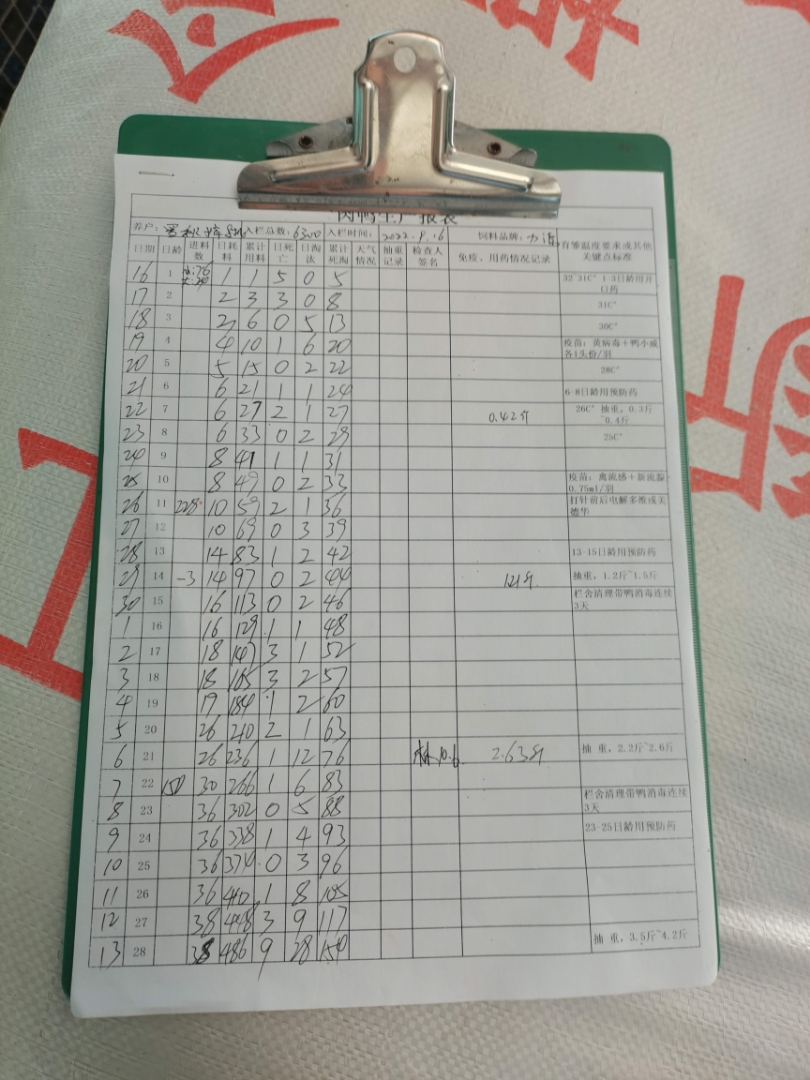 肉鸭生产报表
养户: 入栏总数:6300 入栏时间:2022.9.16 饲料品牌:
日期 日龄 进料数 日耗料 累计用料 日死亡 日淘汰 累计死淘 天气情况 抽重记录 检查人签名 免疫、用药情况记录 育雏温度要求或其他关键点标准
16 1 1 1 5 0 5 32~31C° 1-3日龄用开口药
17 2 2 3 3 0 8 31C°
18 3 6 0 5 13 30C°
19 4 4 10 1 6 20 疫苗:黄病毒+鸭小减各1头份/羽
20 5 5 15 0 2 22 28C°
21 6 6 21 1 1 24 6-8日龄用预防药
22 7 6 27 2 1 27 0.42斤 26C° 抽重,0.3斤~0.4斤
23 8 6 33 0 2 29 25C°
24 9 8 41 1 1 31
25 10 8 49 0 2 33 疫苗:禽流感+新流 0.75ml/羽
26 11 228 10 59 2 1 36 打针前后电解多维或美德华
27 12 10 69 0 3 39
28 13 14 83 1 2 42 13-15日龄用预防药
29 14 -3 14 97 0 2 44 抽重,1.2斤~1.5斤
30 15 16 113 0 2 46 栏舍清理带鸭消毒连续3天
1 16 16 129 1 1 48
2 17 18 147 3 1 52
3 18 18 165 3 2 57
4 19 19 184 1 2 60
5 20 26 210 2 1 63
6 21 26 236 1 12 76 10.6 2.63斤 抽 重,2.2斤~2.6斤
7 22 150 30 266 1 6 83
8 23 36 302 0 5 88 栏舍清理带鸭消毒连续3天
9 24 36 338 1 4 93 23-25日龄用预防药
10 25 36 374 0 3 96
11 26 36 410 1 8 105
12 27 38 448 3 9 117
13 28 38 486 9 28 抽 重,3.5斤~4.2斤